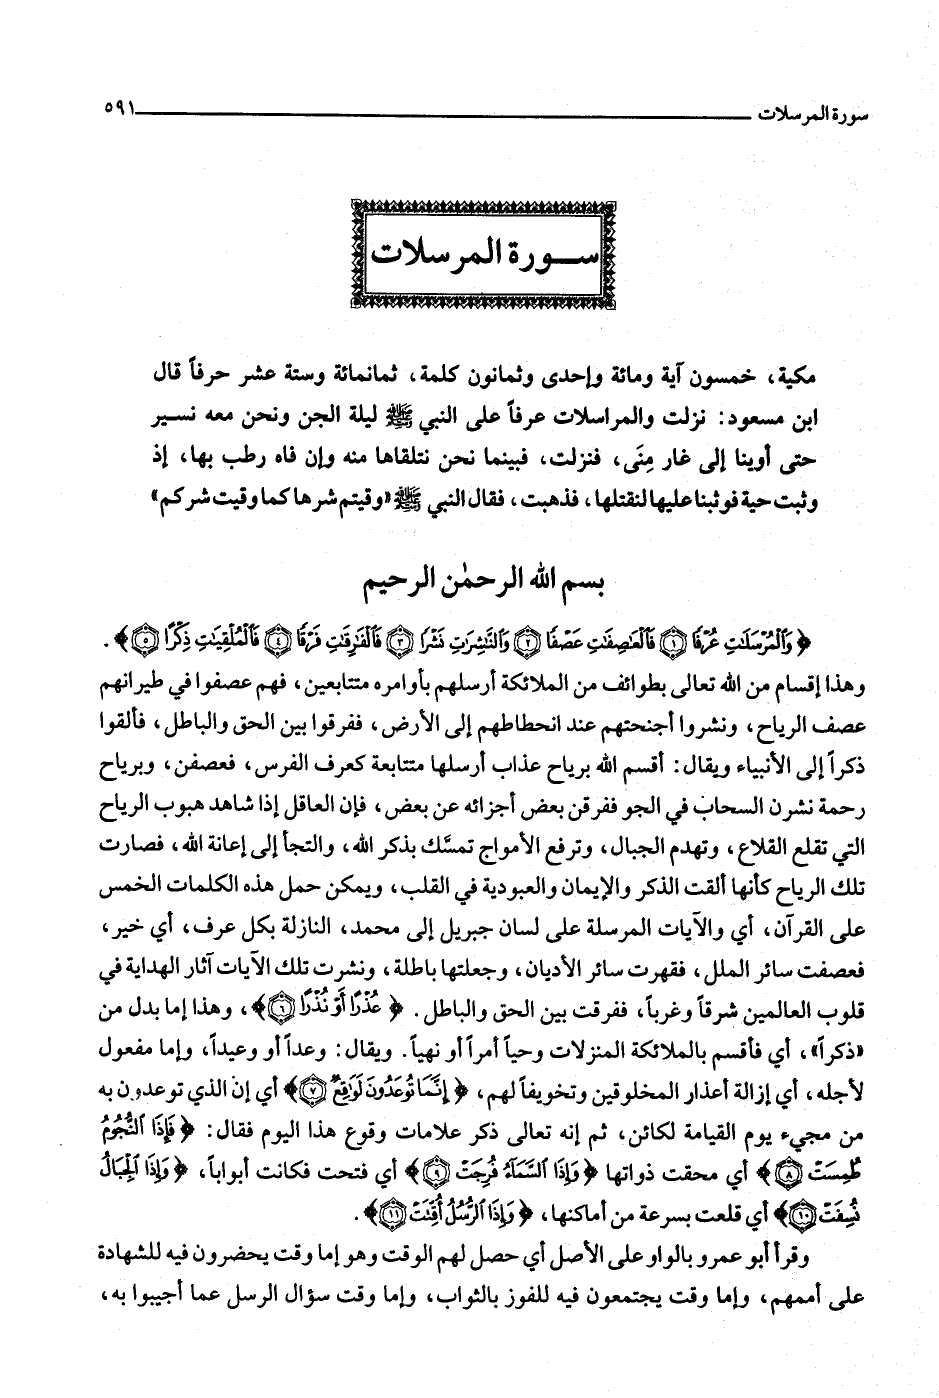 سورة المرسلات ٥٩١
سورة المرسلات
مكية، خمسون آية ومائة وإحدى وثمانون كلمة، ثمانمائة وستة عشر حرفاً قال
ابن مسعود: نزلت والمراسلات عرفاً على النبي ﷺ ليلة الجن ونحن معه نسير
حتى أوينا إلى غار مِنَى، فنزلت، فبينما نحن نتلقاها منه وإن فاه رطب بها، إذ
وثبت حية فوثبنا عليها لنقتلها، فذهبت، فقال النبي ﷺ «وقيتم شرها كما وقيت شركم»
بسم الله الرحمٰن الرحيم
﴿ وَٱلْمُرْسَلَٰتِ عُرْفًا ١ فَٱلْعَٰصِفَٰتِ عَصْفًا ٢ وَٱلنَّٰشِرَٰتِ نَشْرًا ٣ فَٱلْفَٰرِقَٰتِ فَرْقًا ٤ فَٱلْمُلْقِيَٰتِ ذِكْرًا ٥ ﴾.
وهذا إقسام من الله تعالى بطوائف من الملائكة أرسلهم بأوامره متتابعين، فهم عصفوا في طيرانهم
عصف الرياح، ونشروا أجنحتهم عند انحطاطهم إلى الأرض، ففرقوا بين الحق والباطل، فألقوا
ذكراً إلى الأنبياء ويقال: أقسم الله برياح عذاب أرسلها متتابعة كعرف الفرس، فعصفن، وبرياح
رحمة نشرن السحاب في الجو ففرقن بعض أجزائه عن بعض، فإن العاقل إذا شاهد هبوب الرياح
التي تقلع القلاع، وتهدم الجبال، وترفع الأمواج تمسَّك بذكر الله، والتجأ إلى إعانة الله، فصارت
تلك الرياح كأنها ألقت الذكر والإيمان والعبودية في القلب، ويمكن حمل هذه الكلمات الخمس
على القرآن، أي والآيات المرسلة على لسان جبريل إلى محمد، النازلة بكل عرف، أي خير،
فعصفت سائر الملل، فقهرت سائر الأديان، وجعلتها باطلة، ونشرت تلك الآيات آثار الهداية في
قلوب العالمين شرقاً وغرباً، ففرقت بين الحق والباطل. ﴿ عُذْرًا أَوْ نُذْرًا ٦ ﴾، وهذا إما بدل من
«ذكراً»، أي فأقسم بالملائكة المنزلات وحياً أمراً أو نهياً. ويقال: وعداً أو وعيداً، وإما مفعول
لأجله، أي إزالة أعذار المخلوقين وتخويفاً لهم، ﴿ إِنَّمَا تُوعَدُونَ لَوَٰقِعٌ ٧ ﴾ أي إن الذي توعدون به
من مجيء يوم القيامة لكائن، ثم إنه تعالى ذكر علامات وقوع هذا اليوم فقال: ﴿ فَإِذَا ٱلنُّجُومُ
طُمِسَتْ ٨ ﴾ أي محقت ذواتها ﴿ وَإِذَا ٱلسَّمَآءُ فُرِجَتْ ٩ ﴾ أي فتحت فكانت أبواباً، ﴿ وَإِذَا ٱلْجِبَالُ
نُسِفَتْ ١٠ ﴾ أي قلعت بسرعة من أماكنها، ﴿ وَإِذَا ٱلرُّسُلُ أُقِّتَتْ ١١ ﴾.
وقرأ أبو عمرو بالواو على الأصل أي حصل لهم الوقت وهو إما وقت يحضرون فيه للشهادة
على أممهم، وإما وقت يجتمعون فيه للفوز بالثواب، وإما وقت سؤال الرسل عما أجيبوا به،